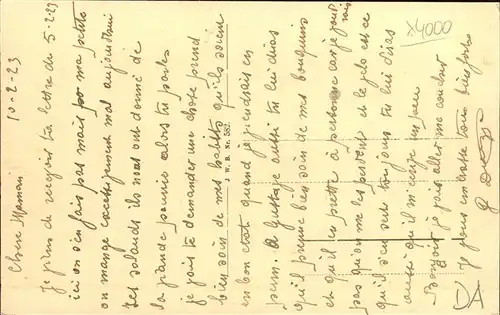 10-2-23
Chère Maman
Je viens de recevoir ta lettre du 5-2-23
ici on s'en fais pas mais
on mange excessivement mal aujourd'hui
les salauds ils nous ont donné de
la viande pourrie alors tu parles
je vais te demander une chose prend
bien soin de mes habits qu'ils soient
en bon état quand je viendrais en
perm. a Gustave aussi tu lui diras
qu'il prenne bien soin de mes bouquins
et qu'il en prette à personne car je
pas qu'on me les perdent et le velo est ce
qu'il s'en sert toujours tu lui diras
aussi qu'il m'écrive un peu
Bonsoir je vais aller me coucher
Je vous embrasse tous bien fort
J. W. B. Nr. 582.
x4000